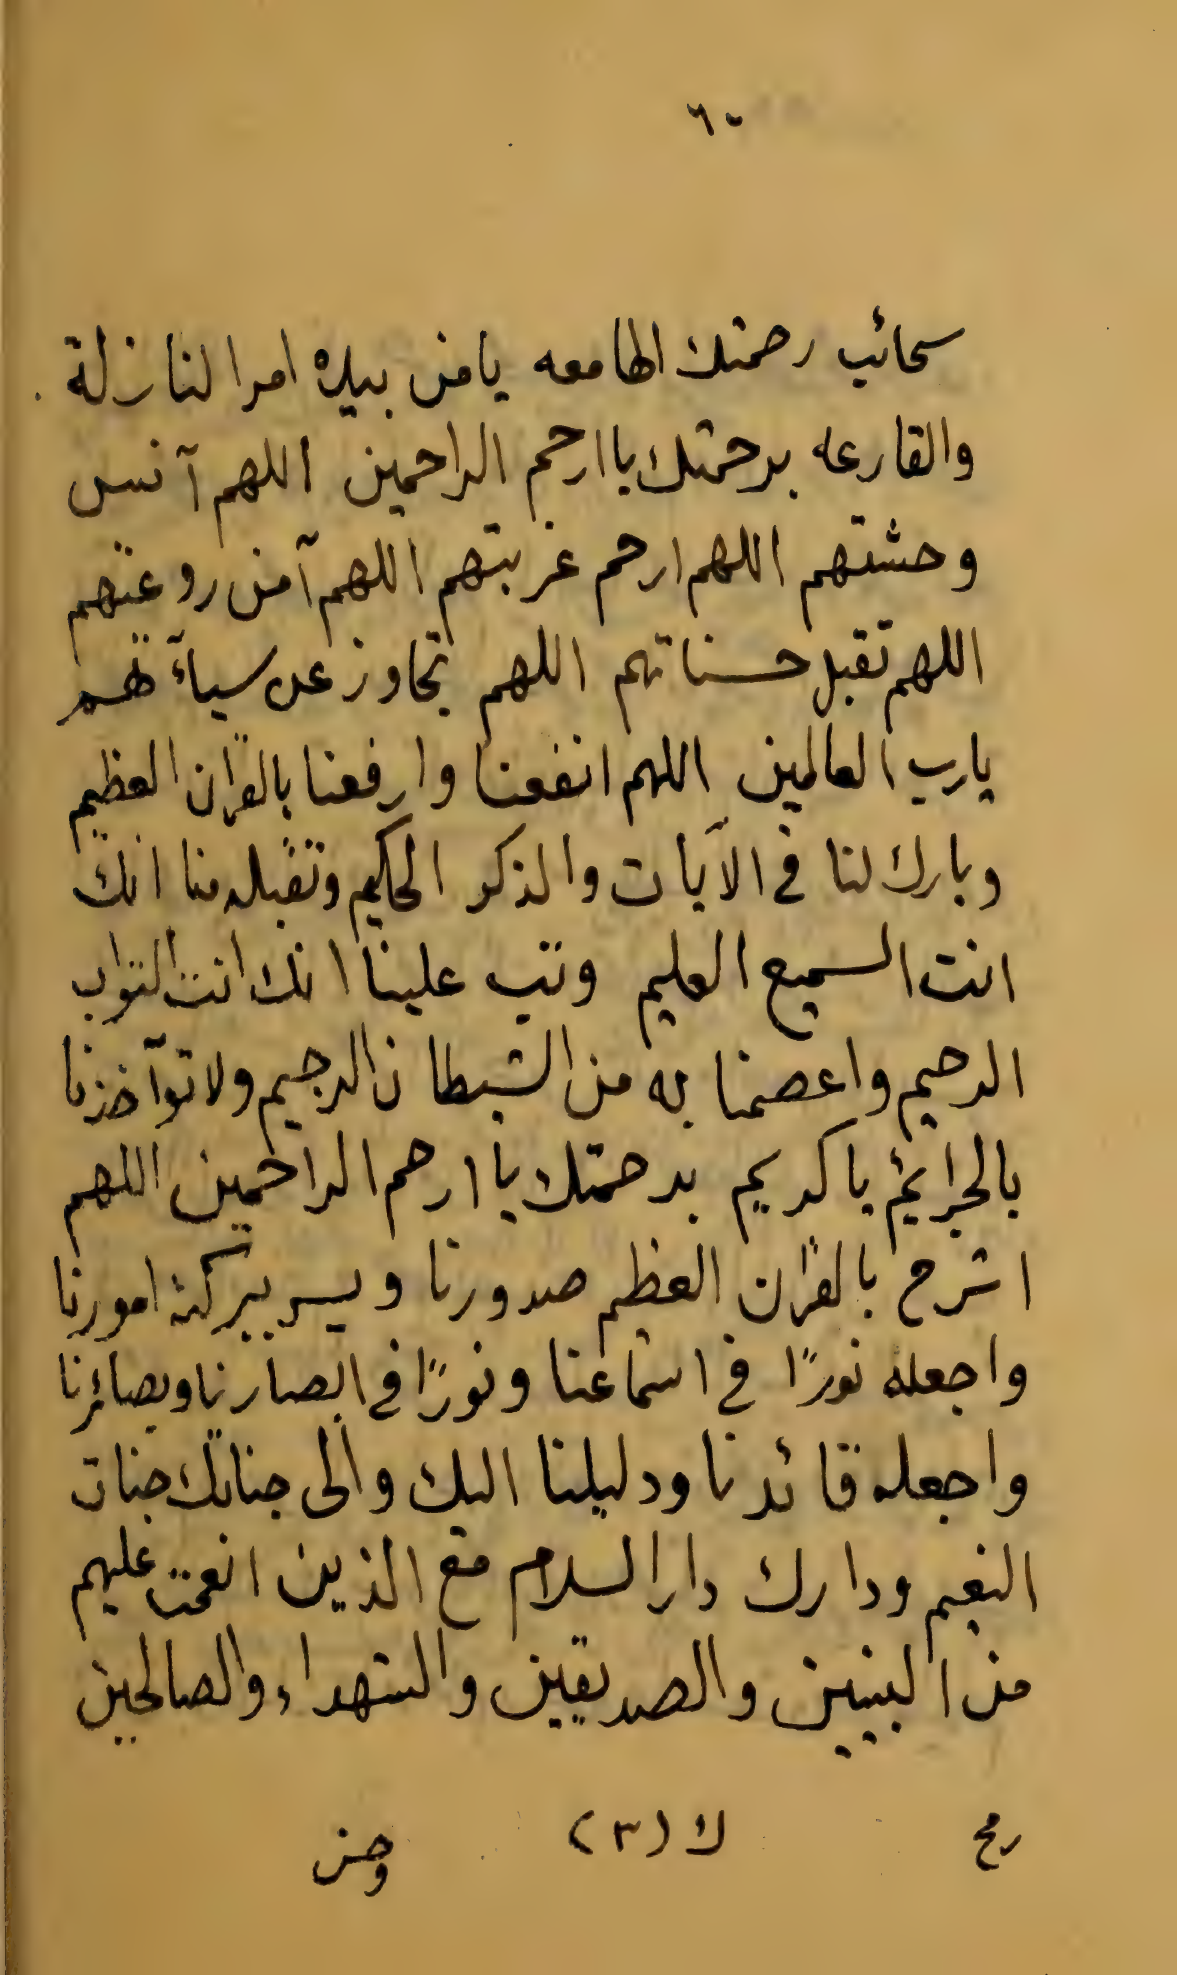 ٦٠
سحائب رحمتك الهامعه يا من بيده امر النازلة
والقارعه برحمتك يا ارحم الراحمين اللهم آنس
وحشتهم اللهم ارحم غربتهم اللهم آمن روعتهم
اللهم تقبل حسناتهم اللهم تجاوز عن سيآءتهم
يارب العالمين اللهم انفعنا وارفعنا بالقرآن العظيم
وبارك لنا في الآيات والذكر الحكيم وتقبله منا انك
انت السميع العليم وتب علينا انك انت التواب
الرحيم واعصمنا به من الشيطان الرجيم ولا توآخذنا
بالجرائم يا كريم برحمتك يا ارحم الراحمين اللهم
اشرح بالقرآن العظيم صدورنا ويسر ببركته امورنا
واجعله نورًا في اسماعنا ونورًا في ابصارنا وبصائرنا
واجعله قائدنا ودليلنا اليك والى جنانك جنات
النعيم ودارك دار السلام مع الذين انعمت عليهم
من النبيين والصديقين والشهداء والصالحين
ك (٣)
وحسن